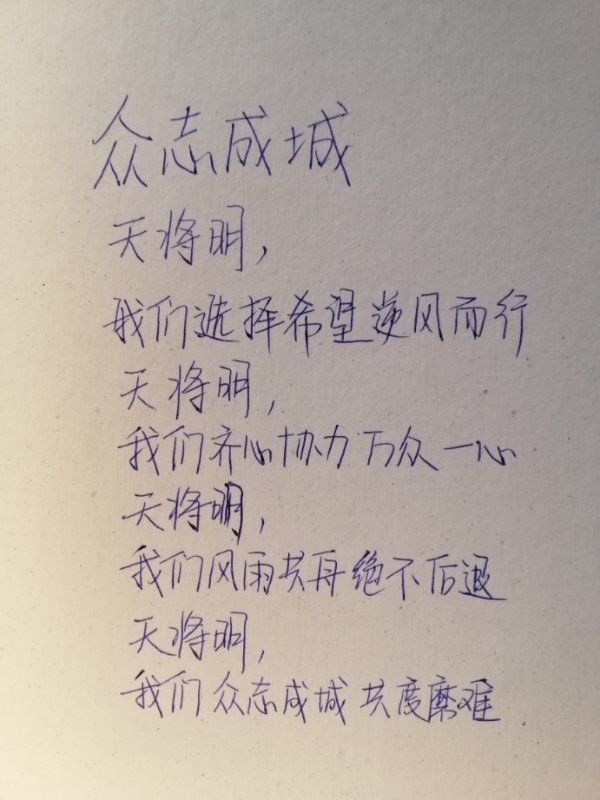 众志成城
天将明，
我们选择希望逆风而行
天将明，
我们齐心协力万众一心
天将明，
我们风雨共舟绝不后退
天将明，
我们众志成城共度磨难